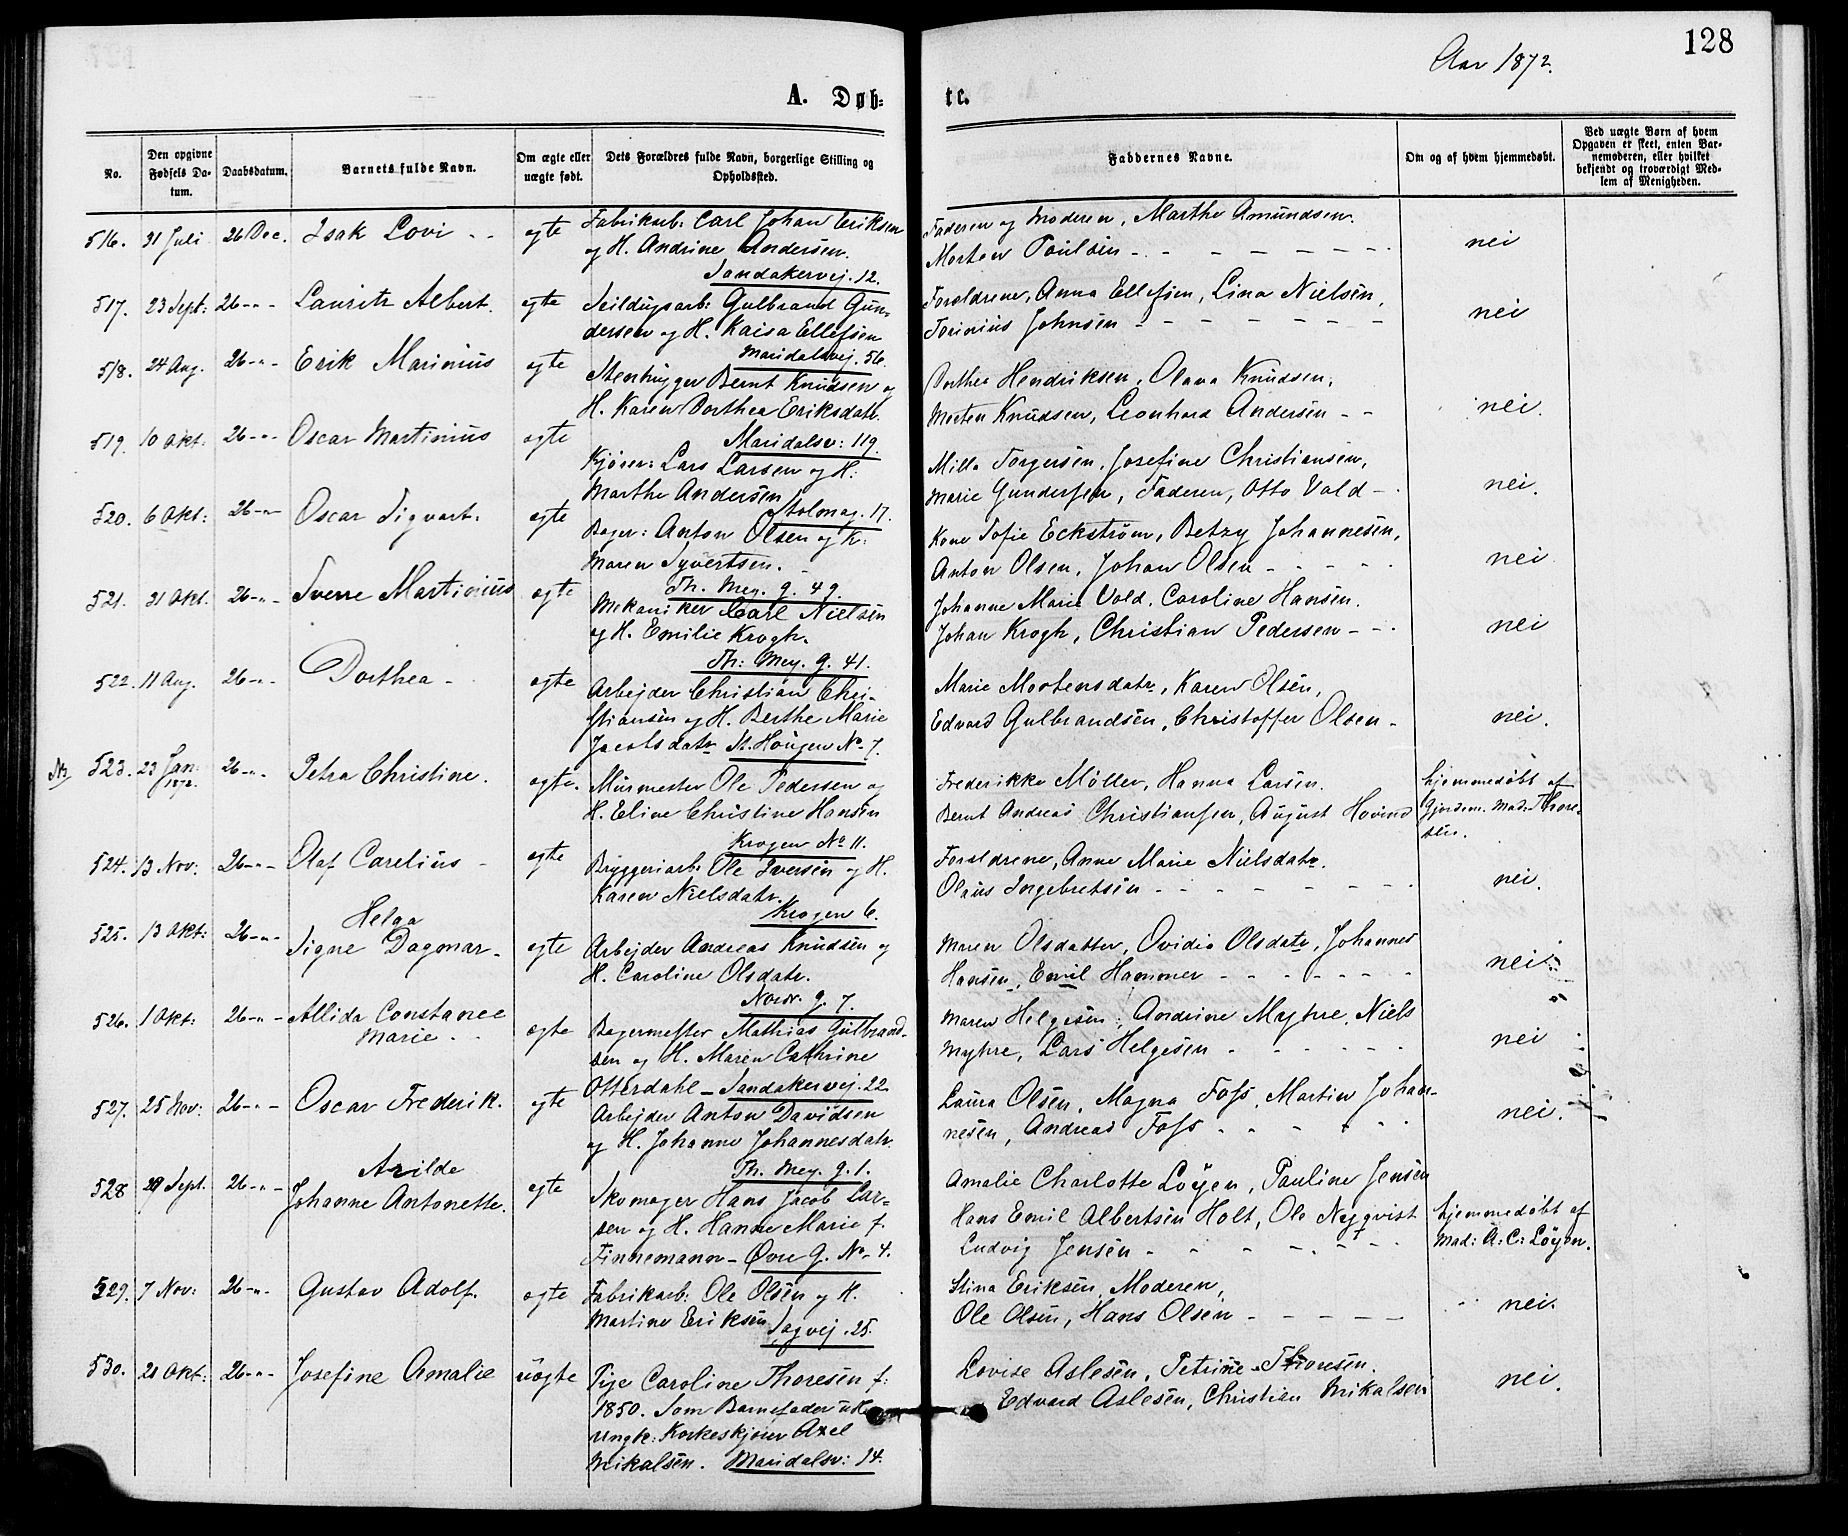 128
Aar 1872.
A. Døb=
te.
No.
Den opgivne Fødsels Da-
tum.
Daabsdatum.
Barnets fulde Navn.
Om ægte eller
uægte født.
Dets Forældres fulde Navn, borgerlige Stilling og
Opholdssted.
Faddernes Navne.
Om og af hvem hjemmedøbt.
Ved uægte Børn af hvem
Opgaven er skeet, enten Bar-
nemoderen, eller hvilket
bekjendt og troværdigt Med-
lem af Menigheden.
516. 31 Juli 26 Dec. Isak Lovi - - ægte Fabrikarb: Carl Johan Eriksen
og H. Andrine Andersen.
Sandakervej. 12.
Faderen og Moderen, Marthe Amundsen.
Morten Poulsen - - - - - - -
nei
517. 23 Sept: 26 -"- Lauritz Albert. ægte Seildugsarb: Gulbrand Gun-
dersen og H. Kaisa Ellefsen
Maridalsvej. 56.
Forældrene, Anna Ellefsen, Lina Nielsen,
Torinius Johnsen - - - - - - -
nei
518. 24 Aug. 26 -"- Erik Marinius ægte Stenhugger Bernt Knudsen og
H. Karen Dorthea Eriksdatr.
Maridalsv: 119.
Dorthea Hendriksen, Olava Knudsen,
Morten Knudsen, Leonhard Andersen - -
nei.
519. 10 Okt: 26 -"- Oscar Martinius ægte
Kjører: Lars Larsen og H.
Marthe Andersen
Stolmag. 17.
Milla Torgersen, Josefine Christiansen,
Marie Gundersen, Faderen, Otto Vold - .
nei.
520. 6 Okt: 26 -"- Oscar Sigvart. ægte
Bager: Anton Olsen og H:
Maren Syvertsen. -
Th. Mey. g. 49.
Kone Sofie Eckstrøm, Betzy Johannesen,
Anton Olsen, Johan Olsen - - - - -
nei
521. 31 Okt. 26 -"- Sverre Martinius ægte
Mekaniker Carl Nielsen
og H. Emilie Krogh.
Th: Mey. g. 41.
Johanne Marie Vold. Caroline Hansen.
Johan Krogh, Christian Pedersen - - .
nei
522. 11 Aug. 26 -"- Dorthea - ægte
Arbejder Christian Chri-
stiansen og H. Berthe Marie
Jacobsdatr St. Hougen No. 7.
Marie Mortensdatr, Karen Olsen,
Edvard Gulbrandsen, Christoffer Olsen -
nei.
523. 23 Jan:
1872. 26 -"- Petra Christine. ægte. Murmester Ole Pedersen og
H. Eline Christine Hansen
Krogen No 11.
Frederikke Møller, Hanna Larsen.
Bernt Andreas Christiansen, August Hovind
hjemmedøbt af
Gjordem. Mad: Thore-
sen.
524. 13 Nov: 26 -"- Olaf Carelius - ægte
Bryggeriarb: Ole Iversen og H.
Karen Nielsdatr.
Krogen 6.
Forældrene, Anne Marie Nielsdatr.
Olaus Ingebretsen - - - - - - -
nei.
525. 13 Okt: 26 -"- Helga
Signe Dagmar - ægte Arbejder Andreas Knudsen og
H. Caroline Olsdatr.
Nordr. g. 7.
Maren Olsdatter, Ovidia Olsdatr, Johannes
Hansen, Emil Hammer - - - - - -
nei
526. 1 Okt: 26 -"- Allida Constance
Marie - - ægte Bagermester Mathias Gulbrand-
sen og H. Maren Cathrine
Otterdahl - Sandakervej. 22.
Maren Helgesen, Andrine Myhre, Niels
Myhre, Lars Helgesen - - - - - -
nei
527. 25 Nov: 26 -"- Oscar Frederik. ægte
Arbejder Anton Davidsen
og H. Johanne Johannesdatr.
Th. Mey. g. 1.
Laura Olsen, Magna Foss, Martin Johan-
nesen, Andreas Foss - - - - - -
nei.
528 29 Sept. 26 -"- Arilde
Johanne Antonette. ægte
Skomager Hans Jacob Lar-
sen og H. Hanne Marie f.
Finnemann - Øvre G. No. 4.
Amalie Charlotte Löyen, Pauline Jensen
Hans Emil Albertsen Holt, Ole Nyqvist
Ludvig Jensen - - - - - -
hjemmedøbt af
Mad: A: C: Löyen.
529. 7 Nov: 26 -"- Gustav Adolf. ægte Fabrikarb: Ole Olsen og H.
Martine Eriksen Sagvej. 25.
Stina Eriksen, Moderen,
Ole Olsen, Hans Olsen - - - - -
nei.
530. 21 Okt: 26 -"- Josefine Amalie uægte Pige Caroline Thoresen f:
1850. Som Barnefader udl.
Ungk: Korkeskjærer Axel
Mikalsen. Maridalsv: 14.
Lovise Aslesen, Petrine Thoresen.
Edvard Aslesen, Christian Mikalsen
nei.